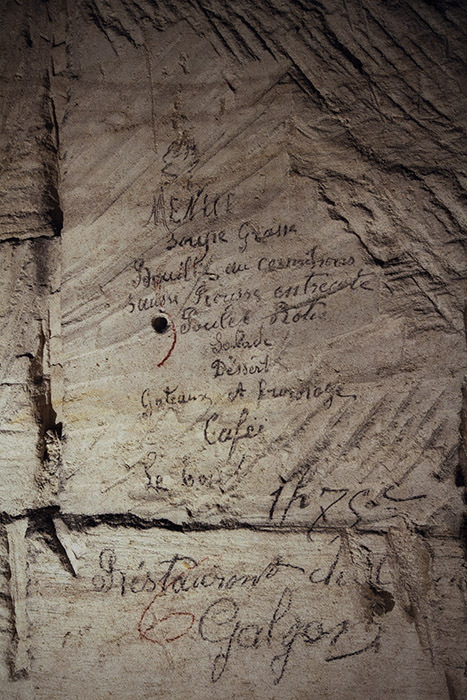 MENUE
Soupe Grasse
Bouilli au cornichons
Sausse Rousse entrecote
Poulet Rotis
Salade
Déssert
Gateaux et fromage
Café
Le tout
1f 75c
Réstaurant
Galgon